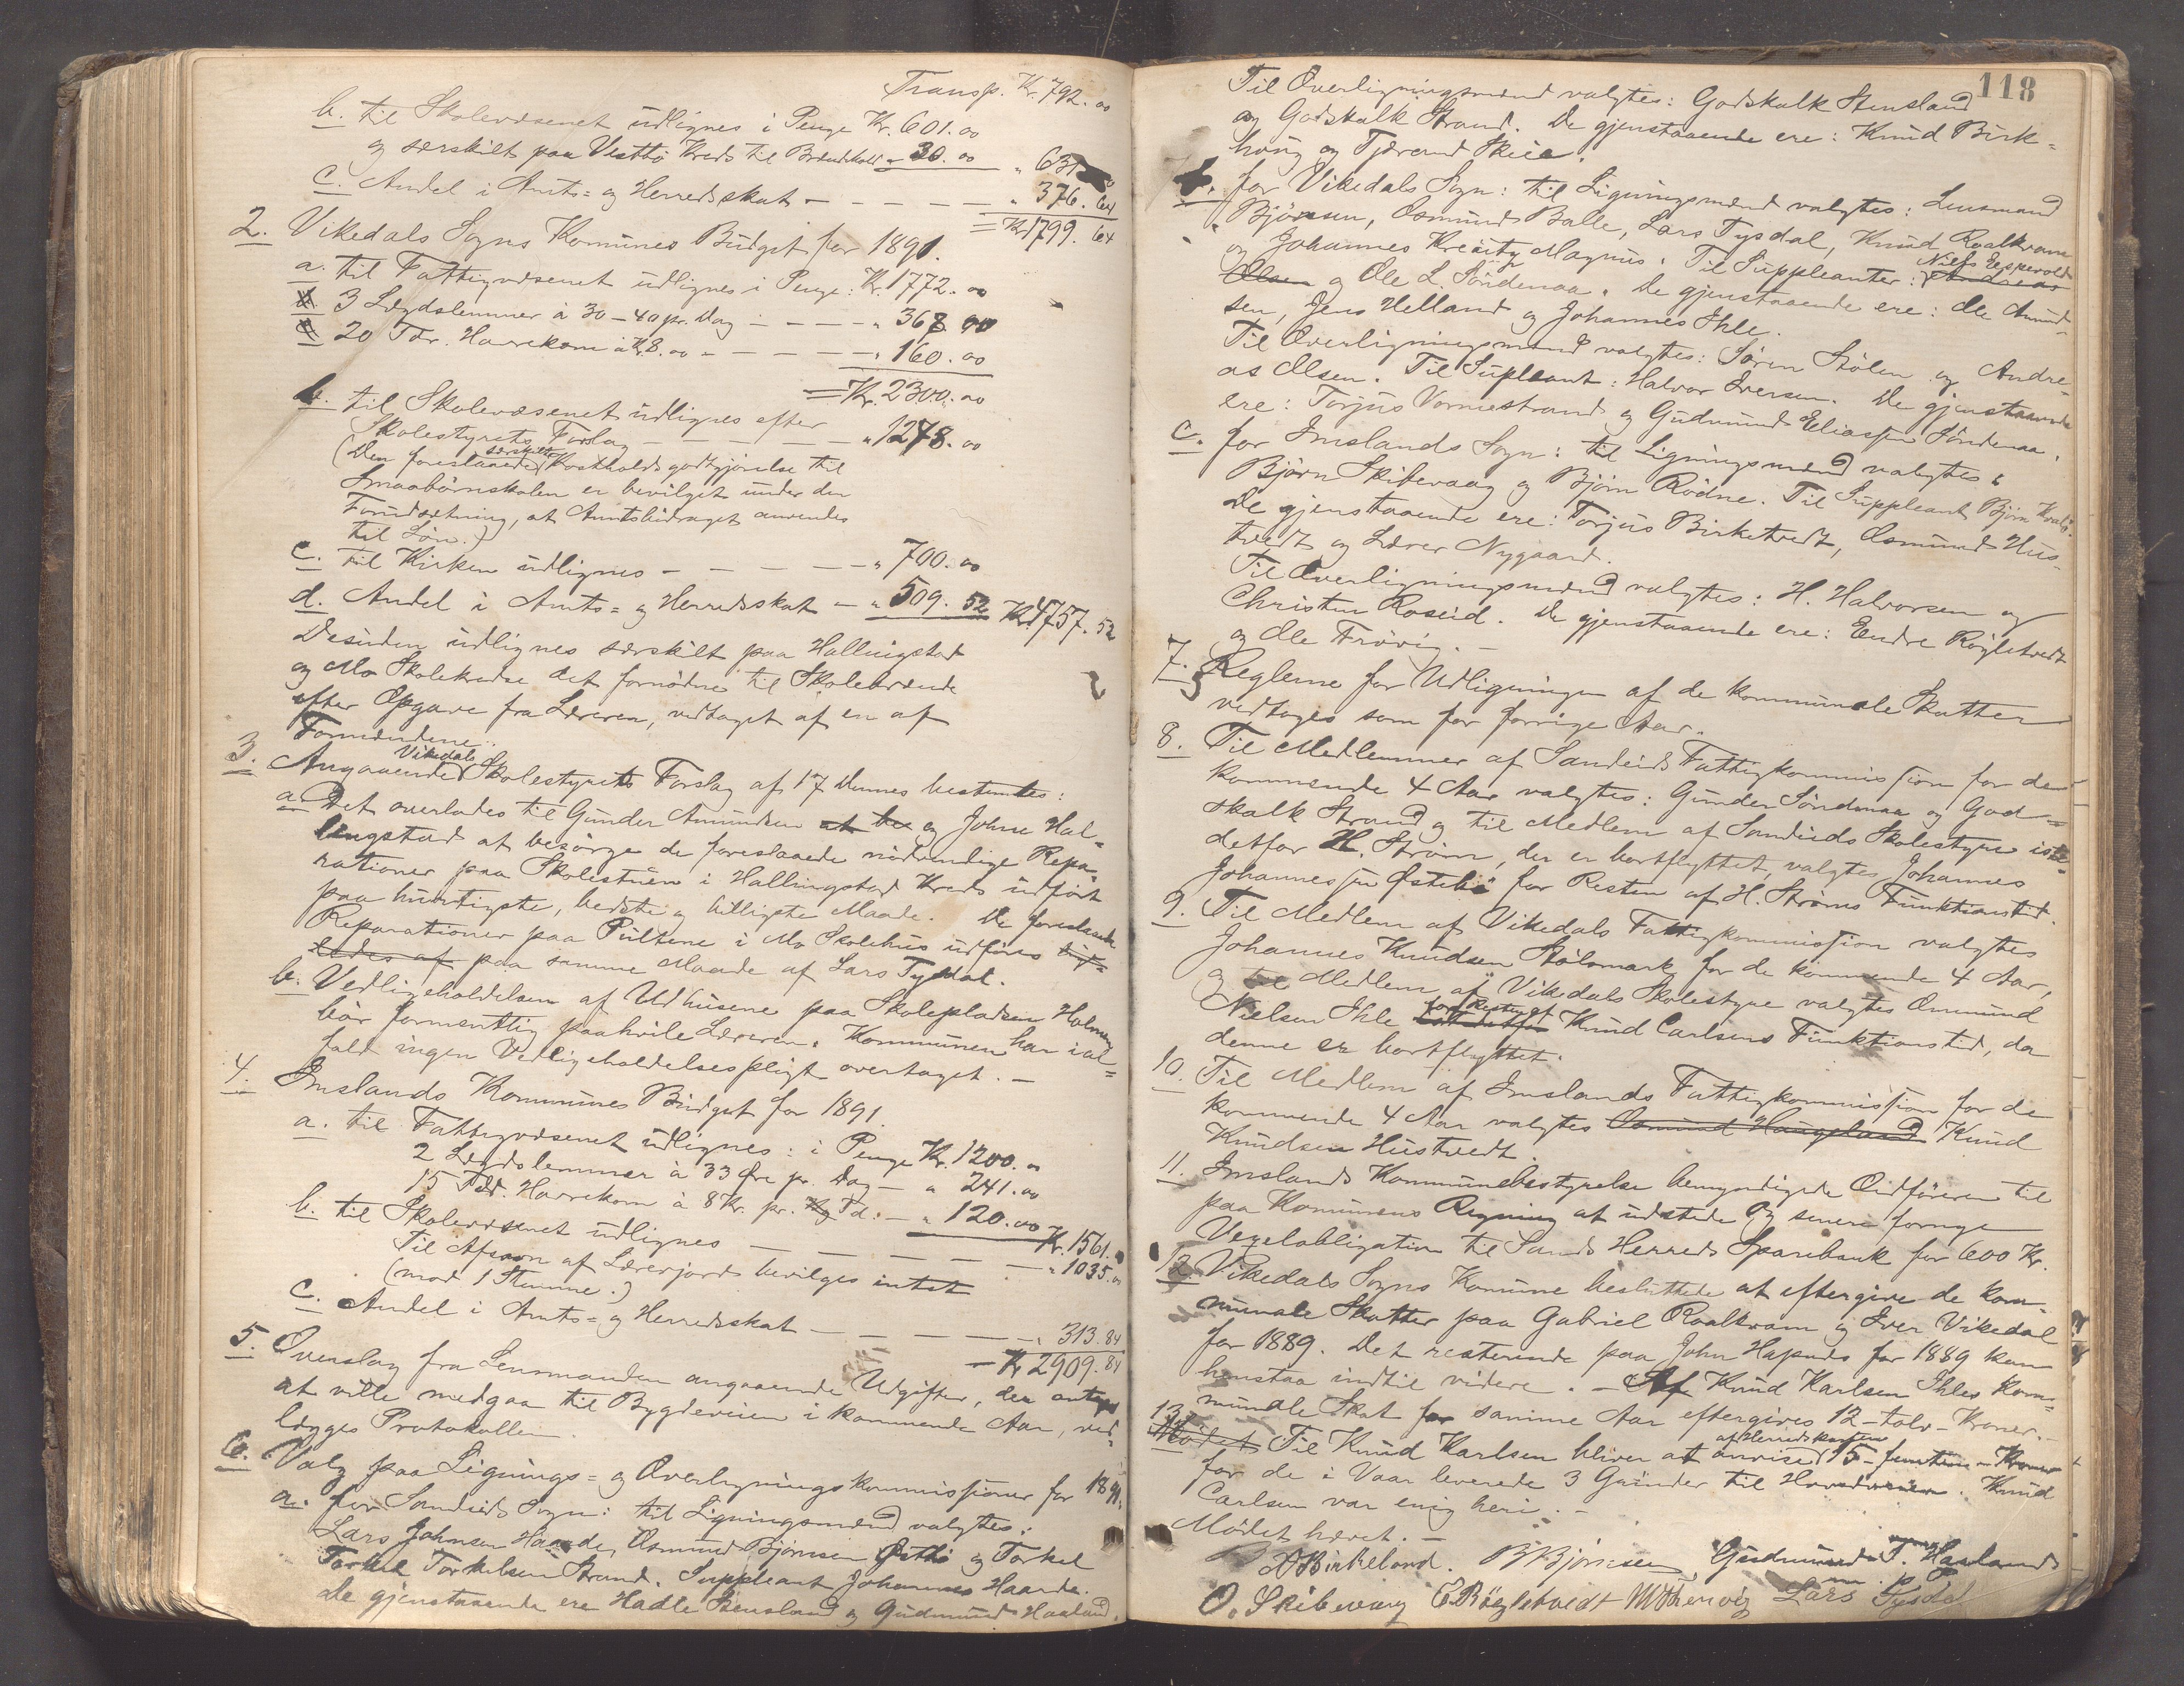 Transp. Kr. 792. 00
b. til Skolevæsenet udlignes i Penge Kr. 601.00
og særskilt paa Vestbø Kreds til Brændehold " 30.00 " 631
c. Andel i Amts= og Herredsskat — — — — — " 376. 64
= Kr 1799. 64
2. Vikedals Sogns Komunes Budget for 1891.
a. til Fattigvæsenet udlignes i Penge: Kr. 1772. 00
3 Lægdslemmer à 30–40 pr. Dag — — — — " 368 00
20 Tdr. Havrekorn à Kr. 8.00 — — — — " 160.00
= Kr. 2300.00
b. til Skolevæsenet udlignes efter
Skolestyrets Forslag — — — — — " 1248.00
(Den foreslaaede særskilte Kostholdsgodtgjørelse til
Smaabørnskolen er bevilget under den
Forudsætning, at Amtsbidraget anvendes
til Løn.)
c. til Kirken udlignes — — — — — " 700.00
d. Andel i Amts= og Herredsskat — " 509. 52 Kr. 4757. 52
Desuden udlignes særskilt paa Hallingstad
og Mo Skolekredse det fornødne til Skolebrænde
efter Opgave fra Læreren, vedtaget af en af
Formændene.
3. Angaaende Vikedals Skolestyrets Forslag af 17 dennes bestemtes:
a. Det overlades til Gunder Amundsen at be og Johne Hal=
lingstad at besørge de foreslaaede nødvendige Repa=
rationer paa Skolestuen i Hallingstad Kreds udført
paa hurtigste, bedste og billigste Maade. De foreslaaede
Reparationer paa Pultene i Mo Skolehus udføres
ledes af paa samme Maade af Lars Tysdal.
b. Vedligeholdelsen af Udhusene paa Skolepladsen Holmen
bør formentlig paahvile Læreren. Kommunen har ial=
fald ingen Vedligeholdelsespligt overtaget. —
4. Imslands Kommunes Budget for 1891.
a. til Fattigvæsenet udlignes: i Penge Kr. 1200. 00
2 Lægdslemmer à 33 Øre pr. Dag — " 241.00
15 Tdr. Havrekorn à 8 Kr. pr. Td: — " 120.00 Kr. 1561.
b. til Skolevæsenet udlignes — — — — — — " 1035. 00
Til Afsavn af Lærerjord bevilges intet
(mod 1 Stemme.)
c. Andel i Amts= og Herredsskat — — — — — " 313. 84
— Kr 2909. 84
5. Overslag fra Lensmanden angaaende Udgifter, der antages
at ville medgaa til Bygdeveien i kommende Aar, ved=
lægges Protokollen
6. Valg paa Lignings= og Overligningskommissioner for 1891.
a. for Sandeids Sogn: til Ligningsmænd valgtes:
Lars Johnsen Haarde, Osmund Bjørnsen Østbø og Torkel
Torkel Torkelsen Strand. Suppleant Johannes Haarde.
De gjenstaaende ere Hadle Stensland og Gudmund Haaland.
118
Til Overligningsmænd valgtes: Godskalk Stensland
og Godskalk Strand. De gjenstaaende ere: Knud Birk=
houg og Tjærand Skeie.
b. for Vikedals Sogn: til Ligningsmænd valgtes: Lensmand
Bjørnsen, Osmund Balle, Lars Tysdal, Knud Roalkvam
og Johannes Magnus. Til Suppleanter: Nils Espevold Andreas
Olsen og Ole L. Søndenaa. De gjenstaaende ere: Ole Amund=
sen, Jens Helland og Johannes Ihle.
Til Overligningsmænd valgtes: Søren Stølen og Andre=
as Olsen. Til Supleant: Halvor Iversen. De gjenstaaende
ere: Torjus Vormestrand og Gudmund Eliassen Søndenaa.
c. for Imslands Sogn: til Ligningsmænd valgtes:
Bjørn Skibevaag og Bjørn Rødne. Til Suppleant Bjørn
De gjenstaaende ere: Torjus Birketvedt, Osmund Hus=
tvedt og Lærer Nygaard.
Til Overligningsmænd valgtes: H. Halvorsen og
Christen Roseid. De gjenstaaende ere: Endre Røgletvedt
og Ole Frøvig. —
7. Reglerne for Udligningen af de kommunale Skatter
vedtages som for forrige Aar.
8. Til Medlemmer af Sandeids Fattigkommission for de
kommende 4 Aar valgtes: Gunder Søndenaa og God=
skalk Strand og til Medlem af Sandeids Skolestyre iste=
detfor H. Strøm, der er bortflyttet, valgtes Johannes
Johannessen Østebø for Resten af H. Strøms Funktionstid.
9. Til Medlem af Vikedals Fattigkommission valgtes
Johannes Knudsen Stølsmark for de kommende 4 Aar,
og til Medlem af Vikedals Skolestyre valgtes Osmund
Nielsen Ihle for Resten af Knud Carlsens Funktionstid, da
denne er bortflyttet.
10. Til Medlem af Imslands Fattigkommission for de
kommende 4 Aar valgtes Osmund Haugeland Knud
Knudsen Hustvedt.
11. Imslands Kommunebestyrelse bemyndigede Ordføreren til
paa Komunens Regning at udstede og senere fornye
Vexelobligation til Sands Herreds Sparebank for 600 Kr.
12. Vikedals Sogns Komune besluttede at eftergive de kom=
munale Skatter paa Gabriel Roalkvam og Iver Vikedal
for 1889. Det resterende paa John Hapnes for 1889 kan
henstaa indtil videre. — Af Knud Karlsen Ihles Kom=
munale Skat for samme Aar eftergives 12 – tolv – Kroner. —
13. Mødet Til Knud Karlsen bliver at anvise af Herredskassen 15 – femten – Kroner
for de i Vaar leverede 3 Grinder til . Knud
Carlsen var enig heri. —
Mødet hævet. —
Birkeland. B Bjørnsen Gudmund T. Haaland
O. Skibevaag E. Røgletvedt Lars Tysdal
m. p. P.